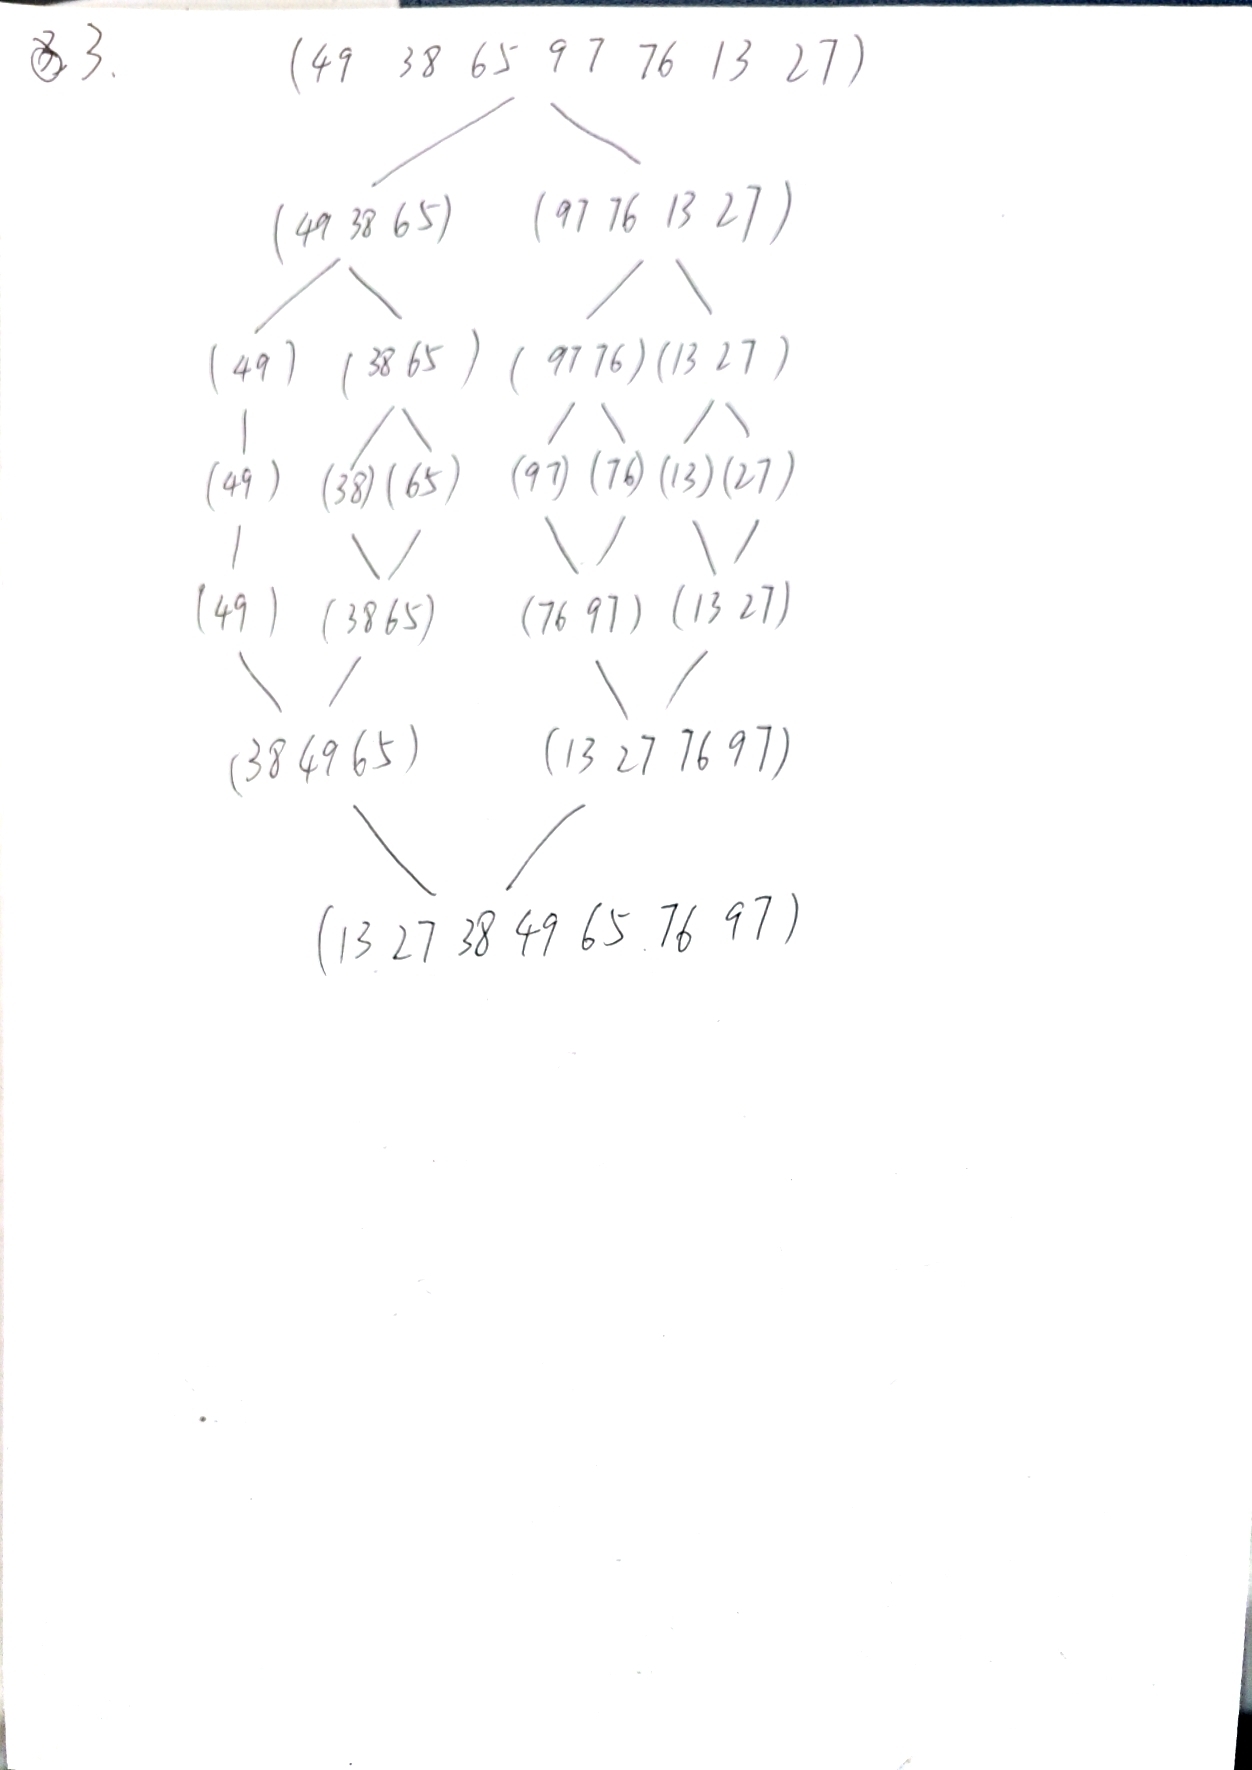 3.
(49 38 65 97 76 13 27)
(49 38 65) (97 76 13 27)
(49) (38 65) (97 76) (13 27)
(49) (38) (65) (97) (76) (13) (27)
(49) (38 65) (76 97) (13 27)
(38 49 65) (13 27 76 97)
(13 27 38 49 65 76 97)